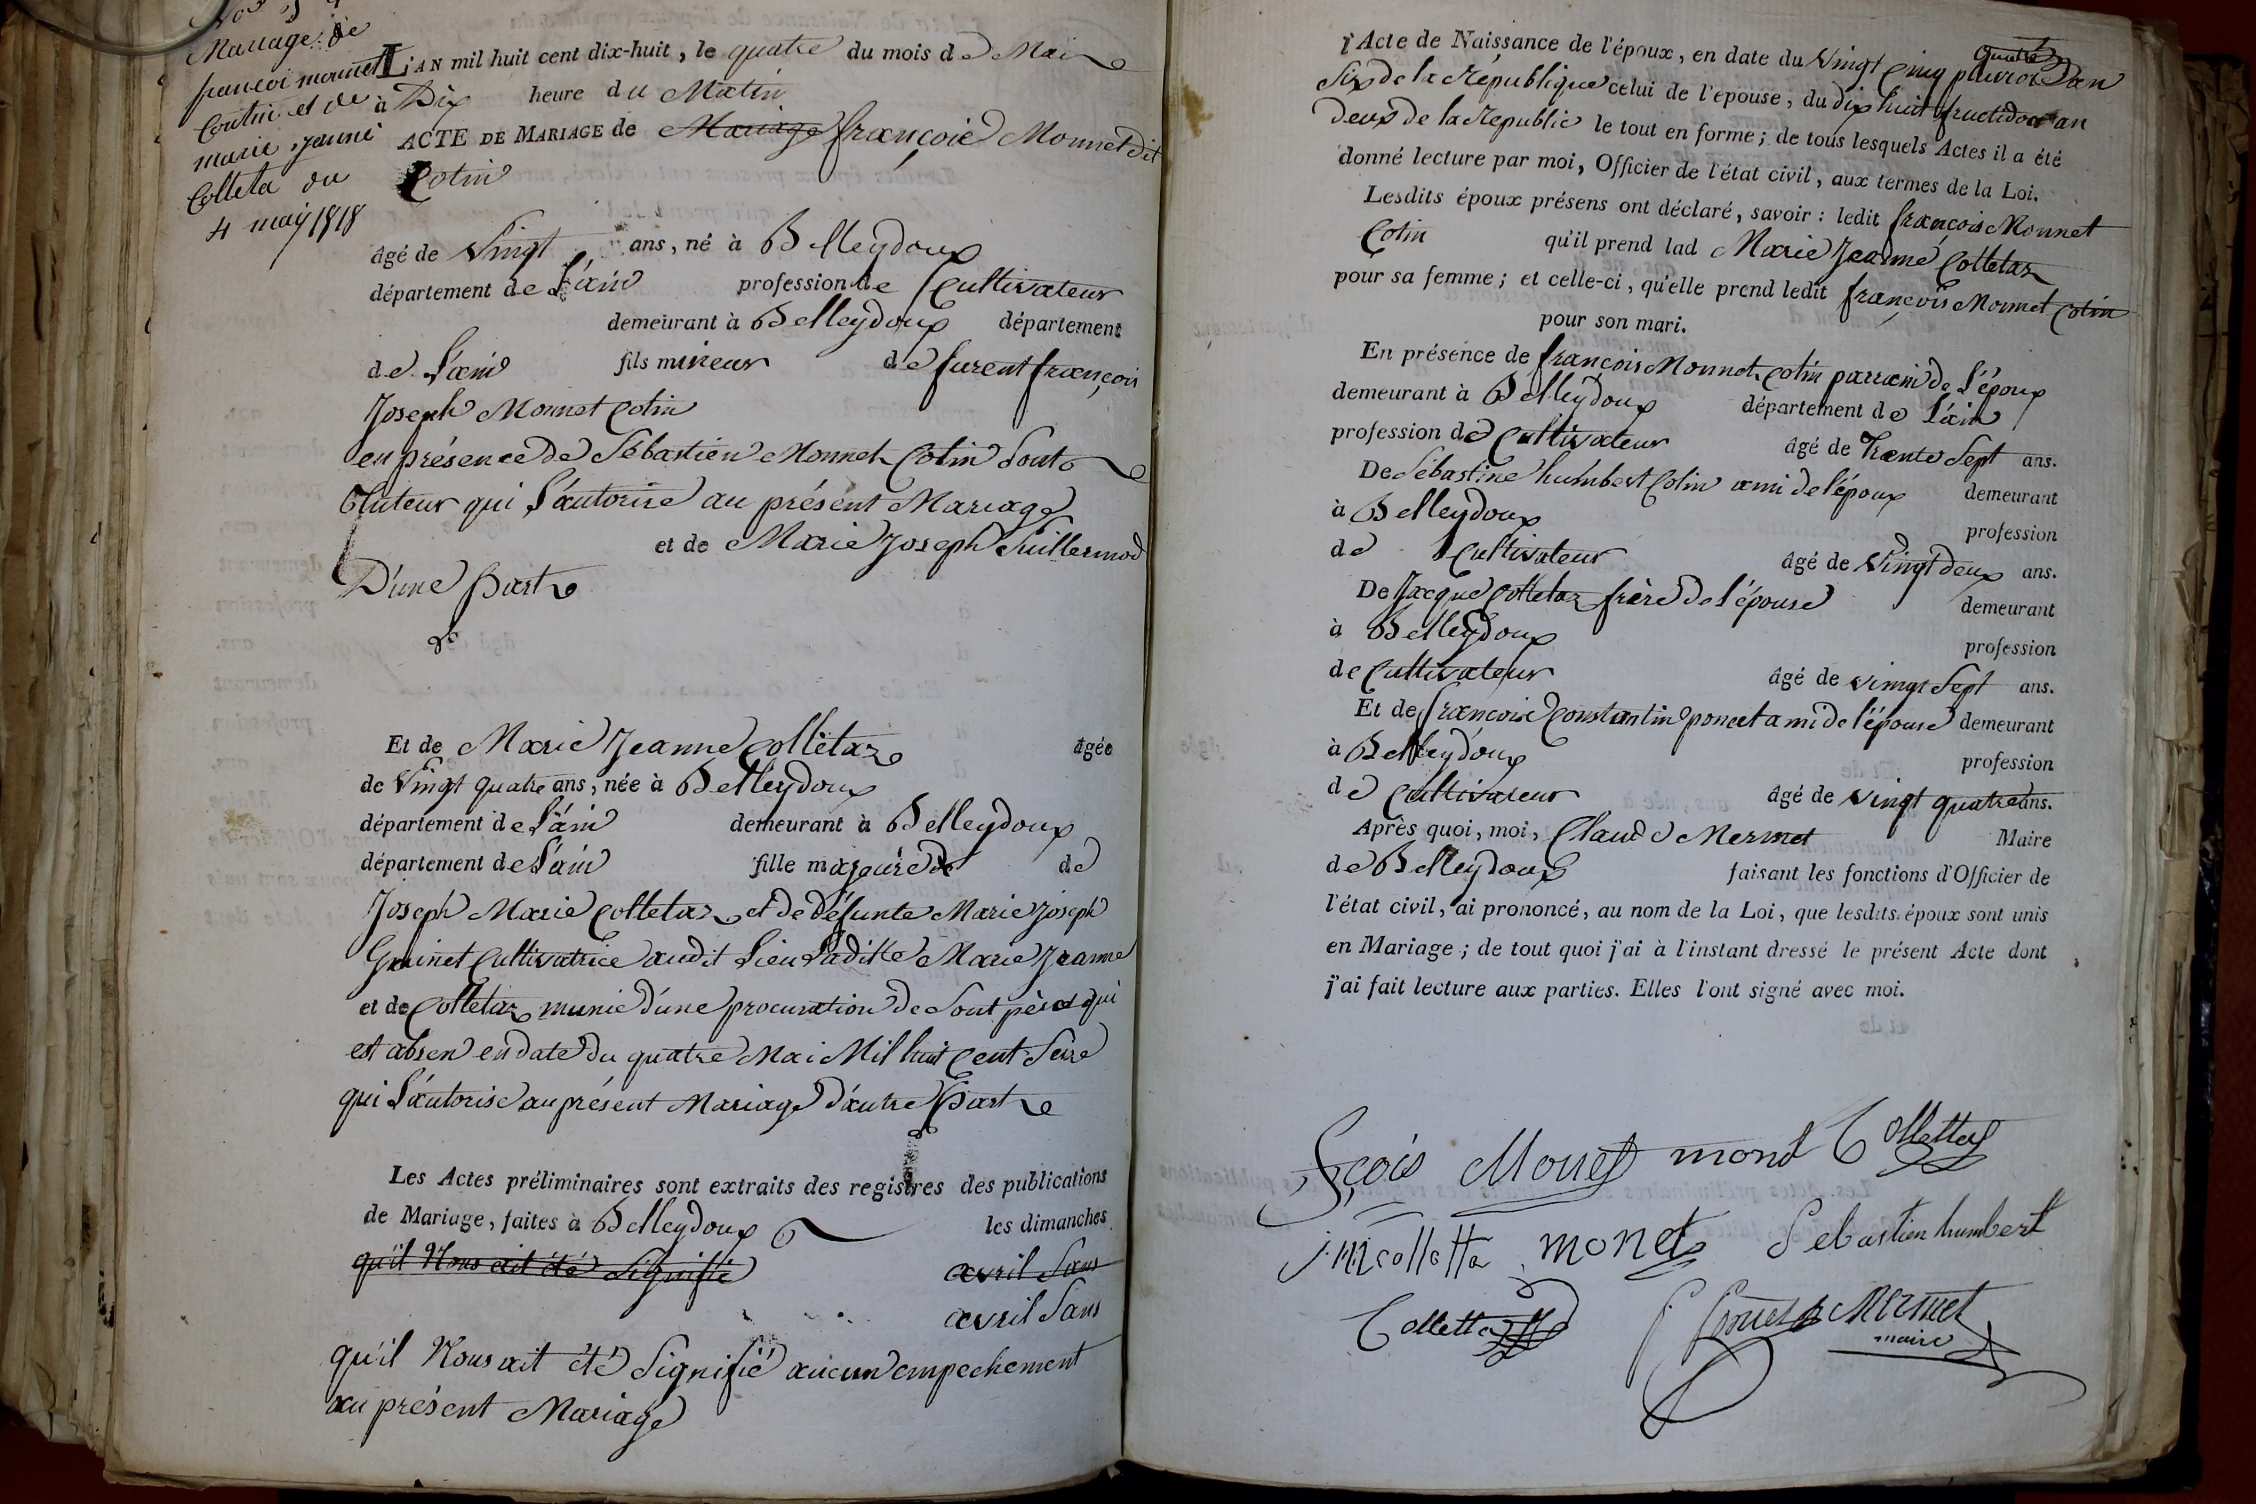 Mariage de
françoi monnet
Coutin et de
marie jeanne
Colleta du
4 may 1818
L'AN mil huit cent dix-huit, le quatre du mois de Mai
à Dix heure du Matin
ACTE DE MARIAGE de Mariage françois Monnet dit
Cotin
âgé de Vingt ans, né à Belleydoux
département de L'ain profession de Cultivateur
demeurant à Belleydoux département
de L'ain fils mineur de furent françois
Joseph Monnet Cotin
en présence de Sébastien Monnet Cotin Sont
tuteur qui L'autorise au présent Mariage
et de Marie Joseph Guillermod
D'une Part
Et de Marie Jeanne Colletaz âgée
de Vingt quatre ans, née à Belleydoux
département de L'ain demeurant à Belleydoux
département de L'ain fille majeure de de
Joseph Marie Colletaz et de défunte Marie Joseph
Grinet Cultivatrice audit Lieu Ladille Marie Jeanne
et de Colletaz munie d'une procuration de Sont père qui
est absen en date du quatre Mai Mil huit Cent Seize
qui L'autorise au présent Mariage d'autre Part
Les Actes préliminaires sont extraits des registres des publications
de Mariage, faites à Belleydoux les dimanches
qu'il Nous ait été Signifié avril Sans
avril Sans
qu'il Nous ait été Signifié aucun empechement
au présent Mariage
l'Acte de Naissance de l'époux, en date du Vingt Cinq pluviose Dan
quatre
Six de la République celui de l'épouse, du dix huit fructidor an
Deux de la Républic le tout en forme; de tous lesquels Actes il a été
donné lecture par moi, Officier de l'état civil, aux termes de la Loi.
Lesdits époux présens ont déclaré, savoir: ledit françois Monnet
Cotin qu'il prend lad Marie Jeanne Colletaz
pour sa femme; et celle-ci, qu'elle prend ledit françois Monnet Cotin
pour son mari.
En présence de françois Monnet Cotin parrain de L'époux
demeurant à Belleydoux département de L'ain
profession de Cultivateur âgé de Trente Sept ans.
De Sébastine humbert Cotin ami de l'époux demeurant
à Belleydoux profession
de Cultivateur âgé de Vingt deux ans.
De Jacque Colletaz frère de L'épouse demeurant
à Belleydoux profession
de Cultivateur âgé de vingt Sept ans.
Et de françois Constantin poncet ami de l'épouse demeurant
à Belleydoux profession
de Cultivateur âgé de vingt quatre ans.
Après quoi, moi, Claude Mermet Maire
de Belleydoux faisant les fonctions d'Officier de
l'état civil, ai prononcé, au nom de la Loi, que lesdits époux sont unis
en Mariage; de tout quoi j'ai à l'instant dressé le présent Acte dont
j'ai fait lecture aux parties. Elles l'ont signé avec moi.
fçois Monet mond Collettaz
j. M. Colletta monet Sebastien humbert
Colletta Mermet
maire